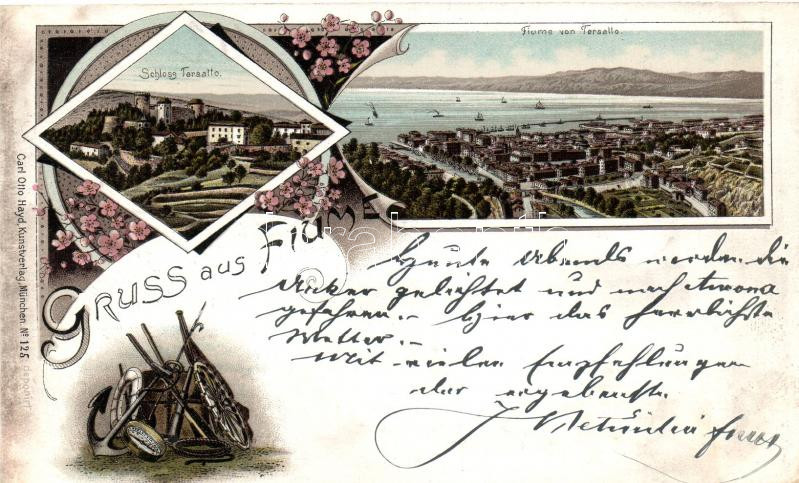 Schloss Tersatto.
Fiume von Tersatto.
Gruss aus Fiume
Carl Otto Hayd, Kunstverlag, München. Nº 125 deponirt
Heute Abends werden die
Anker gelichtet und nach Ancona
gefahren.- Hier das herrlichste
Wetter.-
Mit vielen Empfehlungen
der ergebenste